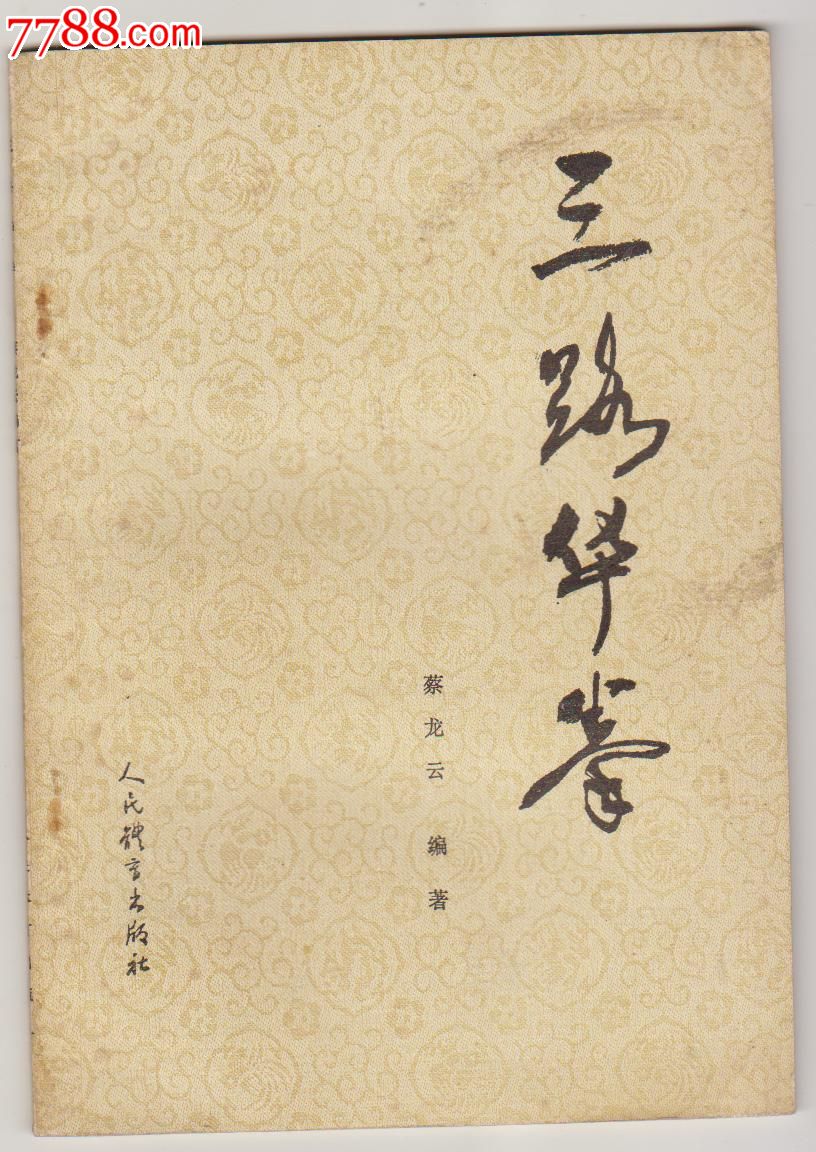 7788.com
三路华拳
蔡龙云 编著
人民體育出版社